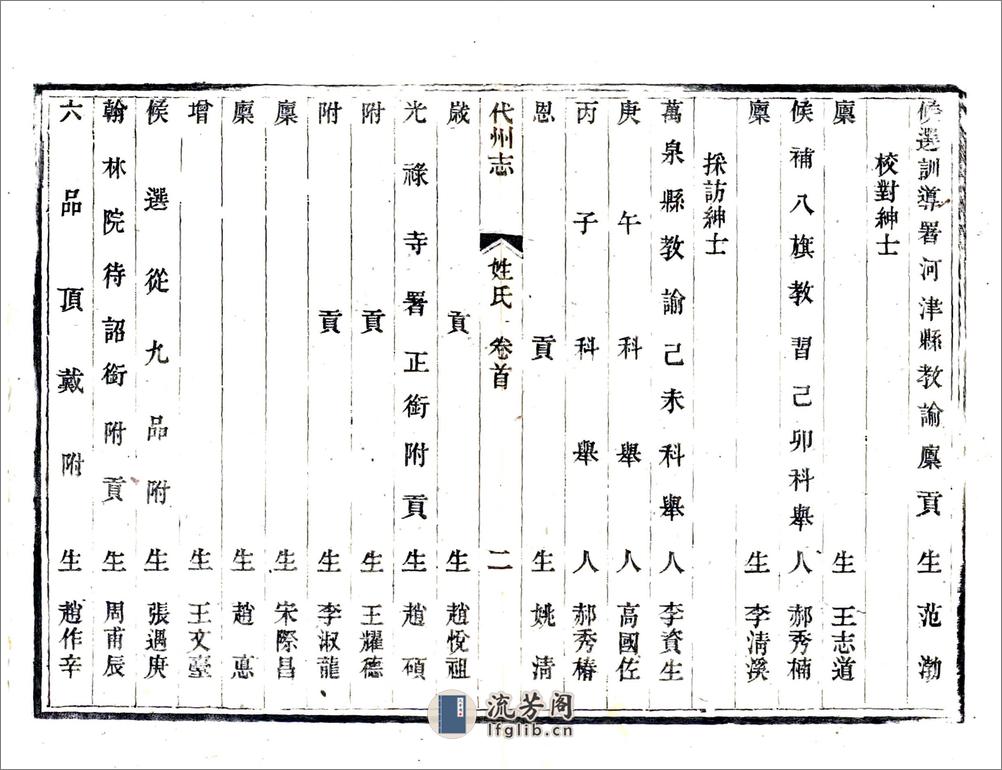 候選訓導署河津縣教諭廩貢生范渤
校對紳士
廩生王志道
候補八旗教習己卯科舉人郝秀楠
廩生李清溪
採訪紳士
萬泉縣教諭己未科舉人李資生
庚午科舉人高國佐
丙子科舉人郝秀椿
恩貢生姚清
代州志 姓氏 卷首 二
歲貢生趙悅祖
光祿寺署正銜附貢生趙碩
附貢生王耀德
附貢生李淑龍
廩生宋際昌
廩生趙惪
增生王文臺
候選從九品附生張遇庚
翰林院待詔銜附貢生周甫辰
六品頂戴附生趙作辛
流芳阁
lfglib.cn